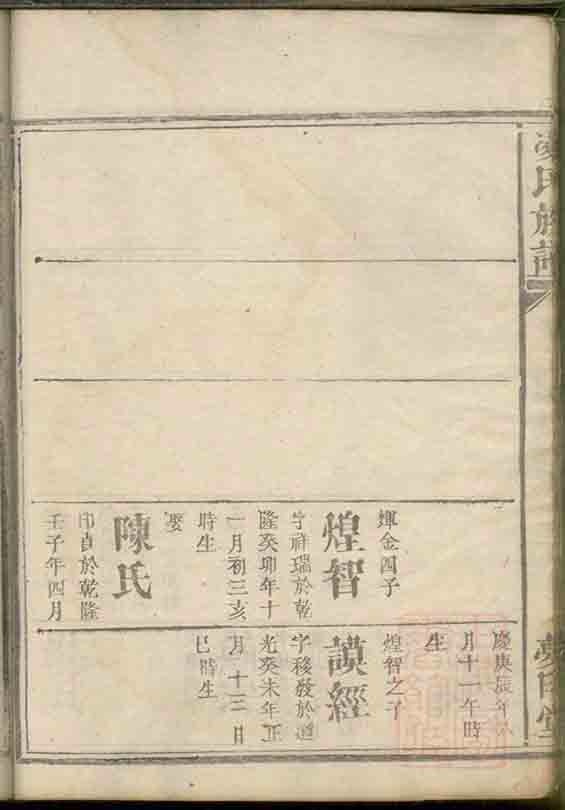 氏族譜
煇金四子
煌智
字祥瑞於乾
隆癸卯年十
一月初三亥
時生
娶
陳氏
印貞於乾隆
壬子年四月
慶庚辰年
月十一午時
生
煌智之子
謨經
字移發於道
光癸未年正
月十三日
巳時生